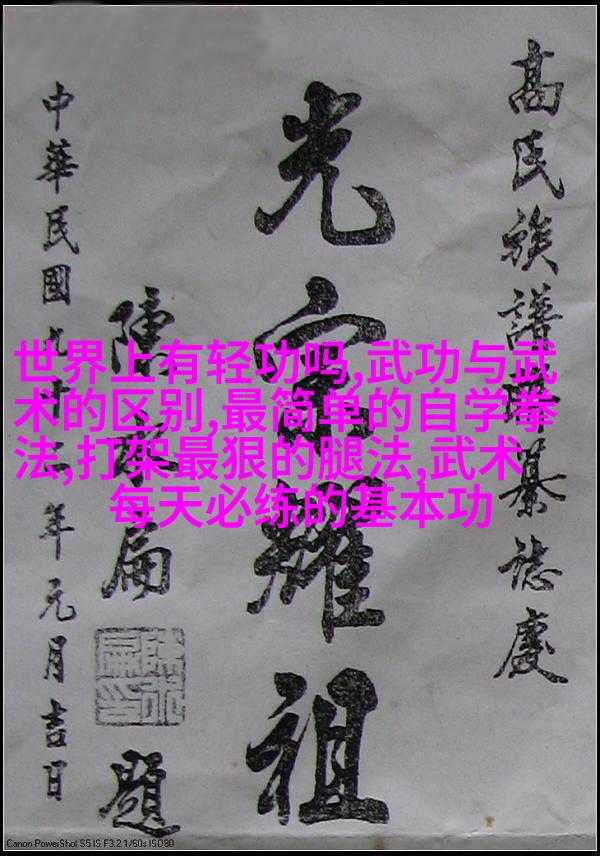 高氏族譜纂誌慶
光宗耀祖
陳水扁題
中華民國九十年元月吉日
世界上有轻功吗,武功与武
术的区别,最简单的自学拳
法,打架最狠的腿法,武术
每天必练的基本功
Canon PowerShot S5 IS F3.2 1/60s ISO80